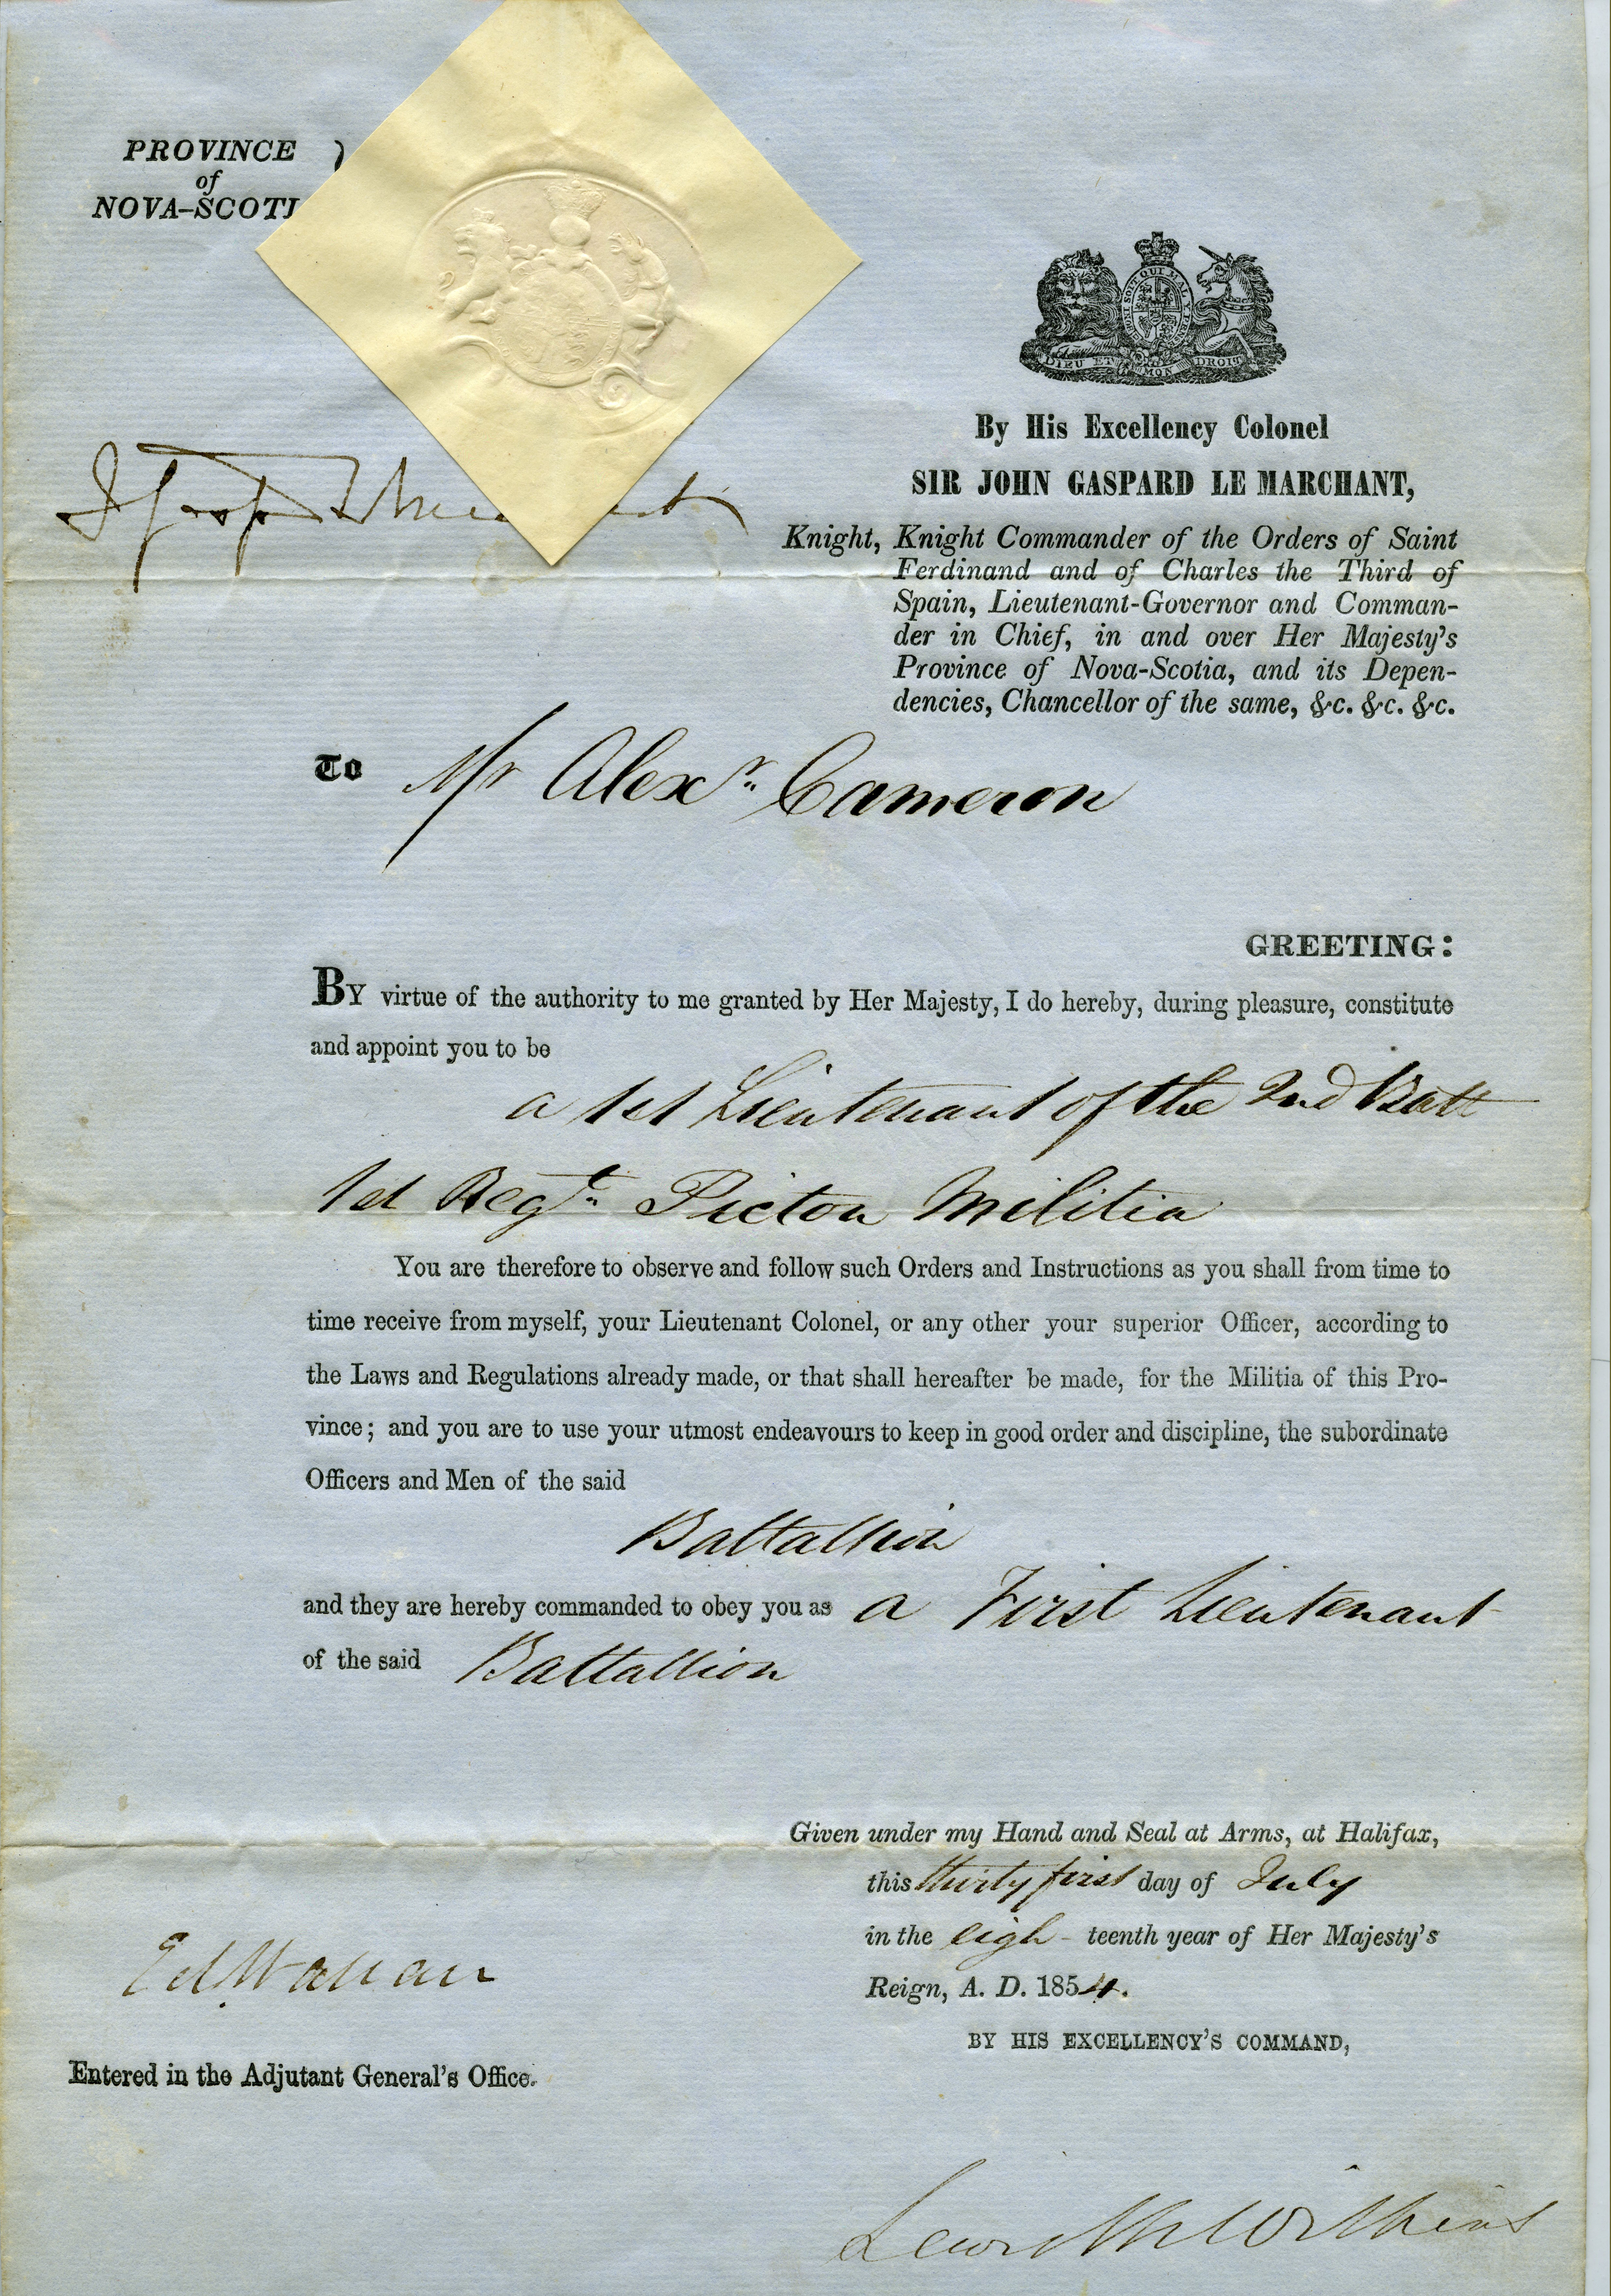 PROVINCE
of
NOVA-SCOTI
HONI SOIT QUI MAL Y
DIEU ET MON DROIT
By His Excellency Colonel
SIR JOHN GASPARD LE MARCHANT,
Knight, Knight Commander of the Orders of Saint
Ferdinand and of Charles the Third of
Spain, Lieutenant-Governor and Comman-
der in Chief, in and over Her Majesty's
Province of Nova-Scotia, and its Depen-
dencies, Chancellor of the same, &c. &c. &c.
To Mr Alexr. Cameron
GREETING:
BY virtue of the authority to me granted by Her Majesty, I do hereby, during pleasure, constitute
and appoint you to be
a 1st Lieutenant of the 2nd Batt
1st Regt. Pictou Militia
You are therefore to observe and follow such Orders and Instructions as you shall from time to
time receive from myself, your Lieutenant Colonel, or any other your superior Officer, according to
the Laws and Regulations already made, or that shall hereafter be made, for the Militia of this Pro-
vince; and you are to use your utmost endeavours to keep in good order and discipline, the subordinate
Officers and Men of the said
Battallion
and they are hereby commanded to obey you as a First Lieutenant
of the said Battallion
Given under my Hand and Seal at Arms, at Halifax,
this thirty first day of July
in the eigh- teenth year of Her Majesty's
Reign, A. D. 1854.
BY HIS EXCELLENCY'S COMMAND,
Ed Wallace
Entered in the Adjutant General's Office.
Lewis M Wilkins